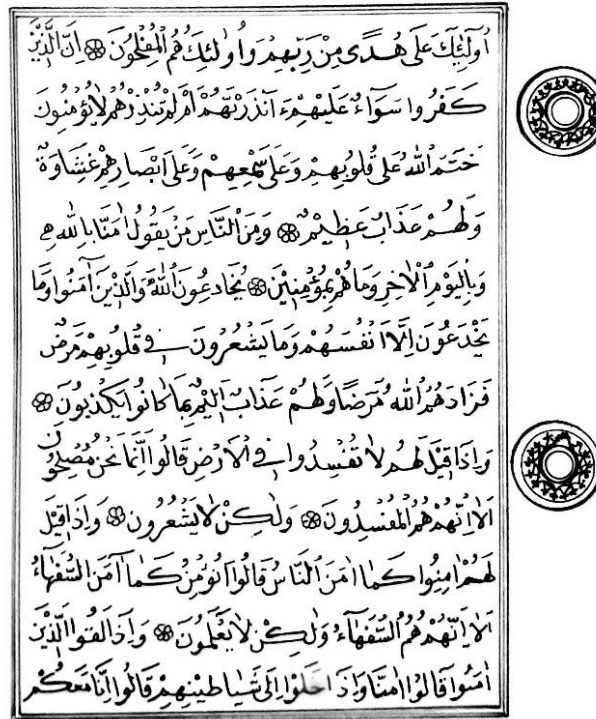 اُولٰئِكَ عَلٰى هُدًى مِنْ رَبِّهِمْ وَاُولٰئِكَ هُمُ الْمُفْلِحُونَ ۞ اِنَّ الَّذِينَ
كَفَرُوا سَوَاءٌ عَلَيْهِمْ ءَاَنْذَرْتَهُمْ اَمْ لَمْ تُنْذِرْهُمْ لَا يُؤْمِنُونَ
خَتَمَ اللّٰهُ عَلٰى قُلُوبِهِمْ وَعَلٰى سَمْعِهِمْ وَعَلٰى اَبْصَارِهِمْ غِشَاوَةٌ
وَلَهُمْ عَذَابٌ عَظِيمٌ ۞ وَمِنَ النَّاسِ مَنْ يَقُولُ اٰمَنَّا بِاللّٰهِ
وَبِالْيَوْمِ الْاٰخِرِ وَمَا هُمْ بِمُؤْمِنِينَ ۞ يُخَادِعُونَ اللّٰهَ وَالَّذِينَ اٰمَنُوا وَمَا
يَخْدَعُونَ اِلَّا اَنْفُسَهُمْ وَمَا يَشْعُرُونَ فِي قُلُوبِهِمْ مَرَضٌ
فَزَادَهُمُ اللّٰهُ مَرَضًا وَلَهُمْ عَذَابٌ اَلِيمٌ بِمَا كَانُوا يَكْذِبُونَ ۞
وَاِذَا قِيلَ لَهُمْ لَا تُفْسِدُوا فِي الْاَرْضِ قَالُوا اِنَّمَا نَحْنُ مُصْلِحُونَ
اَلَا اِنَّهُمْ هُمُ الْمُفْسِدُونَ ۞ وَلٰكِنْ لَا يَشْعُرُونَ ۞ وَاِذَا قِيلَ
لَهُمْ اٰمِنُوا كَمَا اٰمَنَ النَّاسُ قَالُوا اَنُؤْمِنُ كَمَا اٰمَنَ السُّفَهَاءُ
اَلَا اِنَّهُمْ هُمُ السُّفَهَاءُ وَلٰكِنْ لَا يَعْلَمُونَ ۞ وَاِذَا لَقُوا الَّذِينَ
اٰمَنُوا قَالُوا اٰمَنَّا وَاِذَا خَلَوْا اِلٰى شَيَاطِينِهِمْ قَالُوا اِنَّا مَعَكُمْ